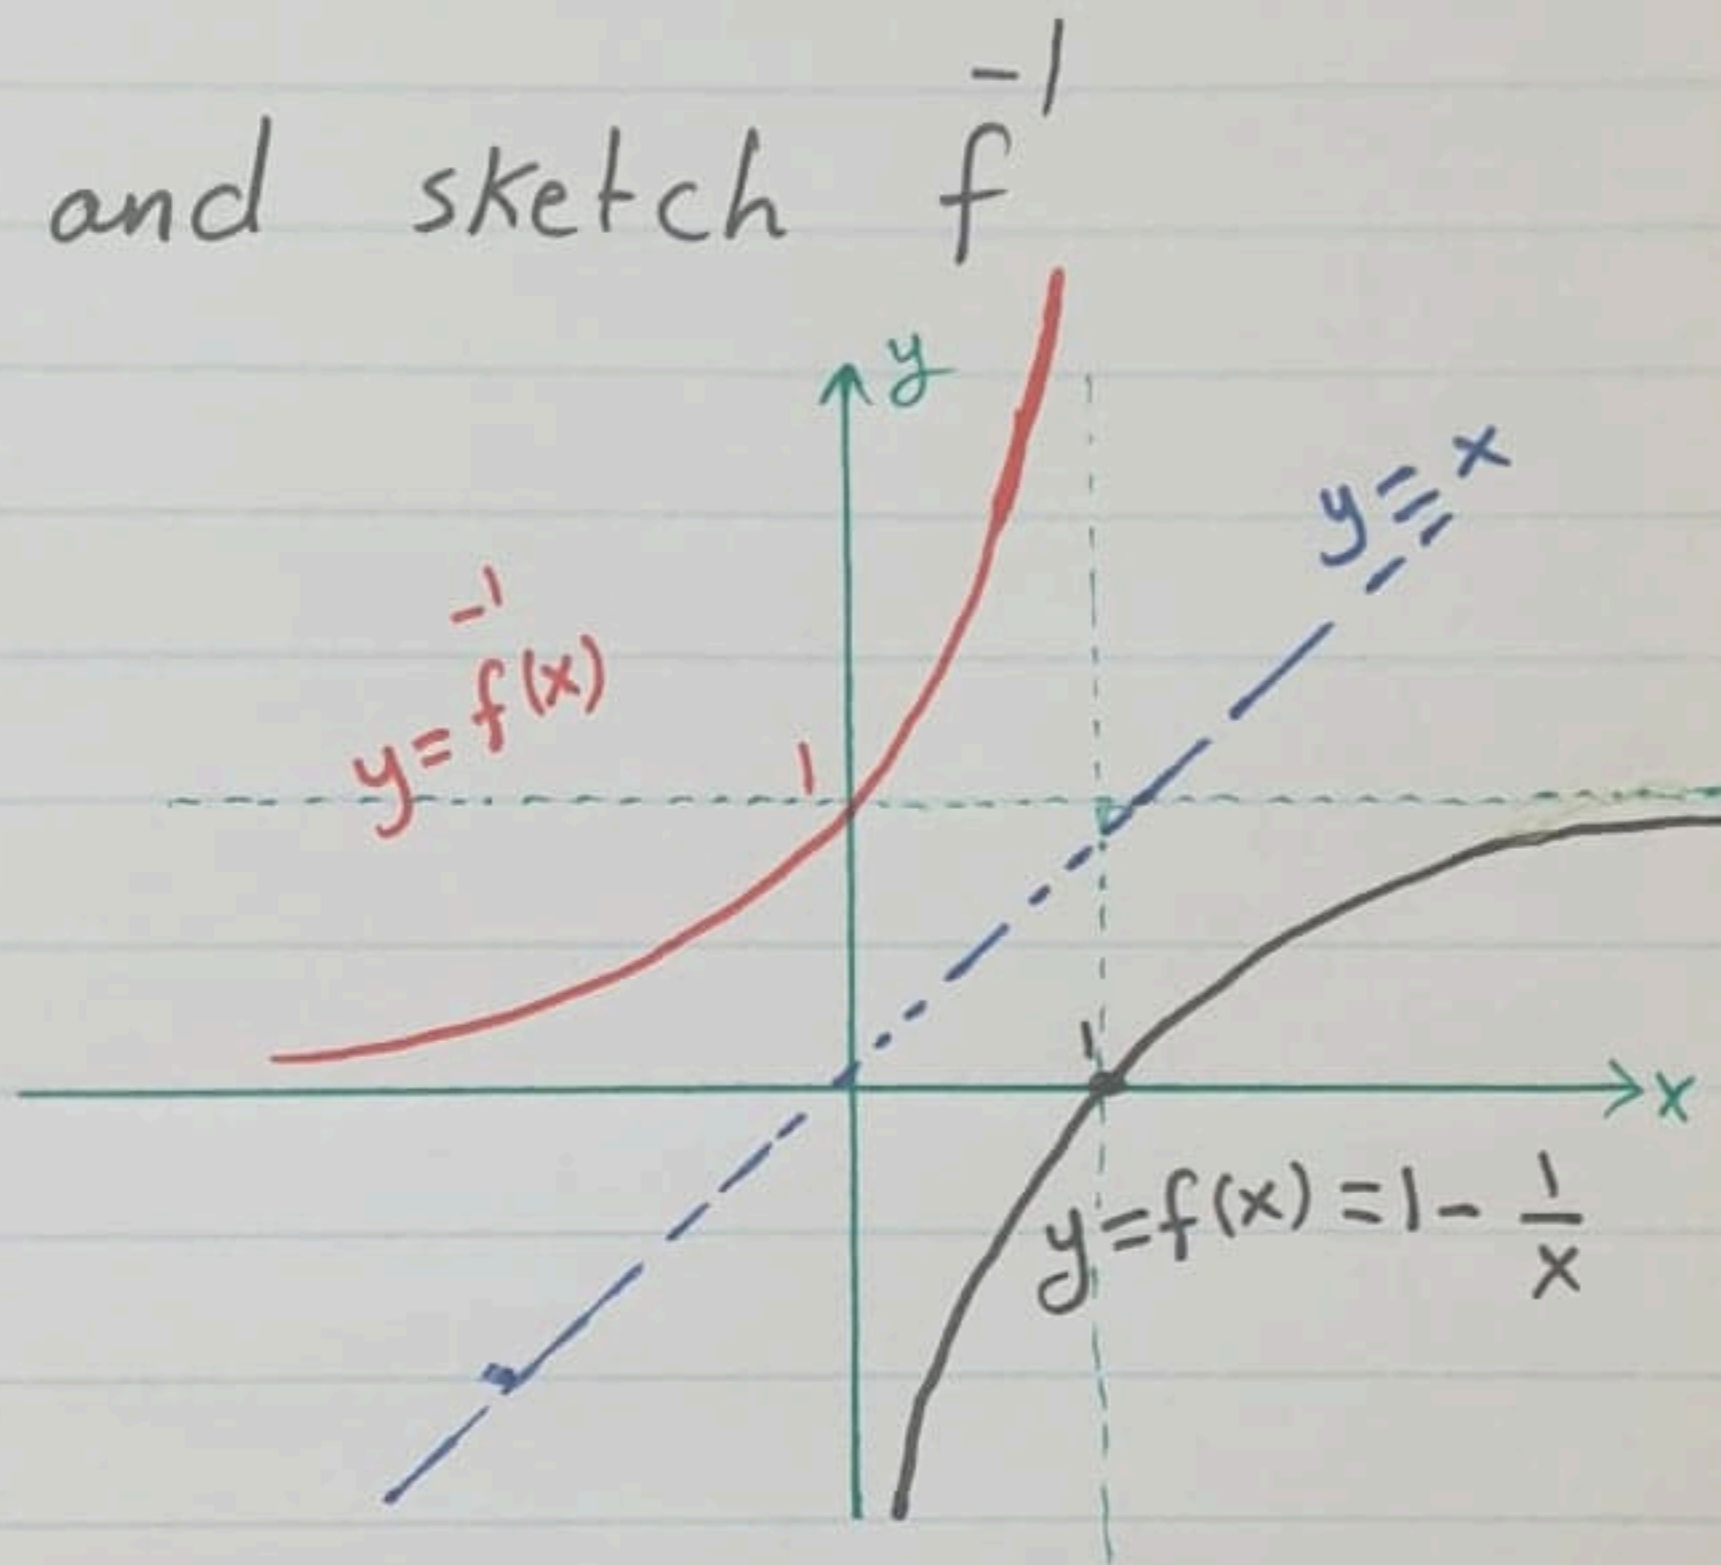 and sketch f⁻¹
y
y = x
y = f⁻¹(x)
1
1
x
y = f(x) = 1 - 1/x